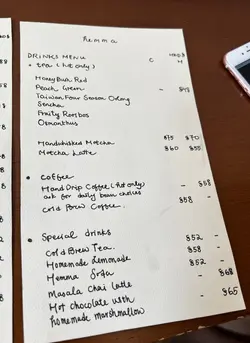 hemma
DRINKS MENU C H
• tea (hot only)
Honeybush Red
Peach Green - $48
Taiwan Four Season Oolong
Sencha
Fruity Rooibos
Osmanthus
Handwhisked Matcha $75 $70
Matcha Latte $60 $55
• Coffee
Hand Drip Coffee (Hot only) - $58
ask for daily bean choices
Cold Brew Coffee $58 -
• Special drinks
Cold Brew Tea $52 -
Homemade Lemonade $58 -
Hemma Soda $52 -
Masala Chai Latte - $68
Hot Chocolate with - $65
homemade marshmallow